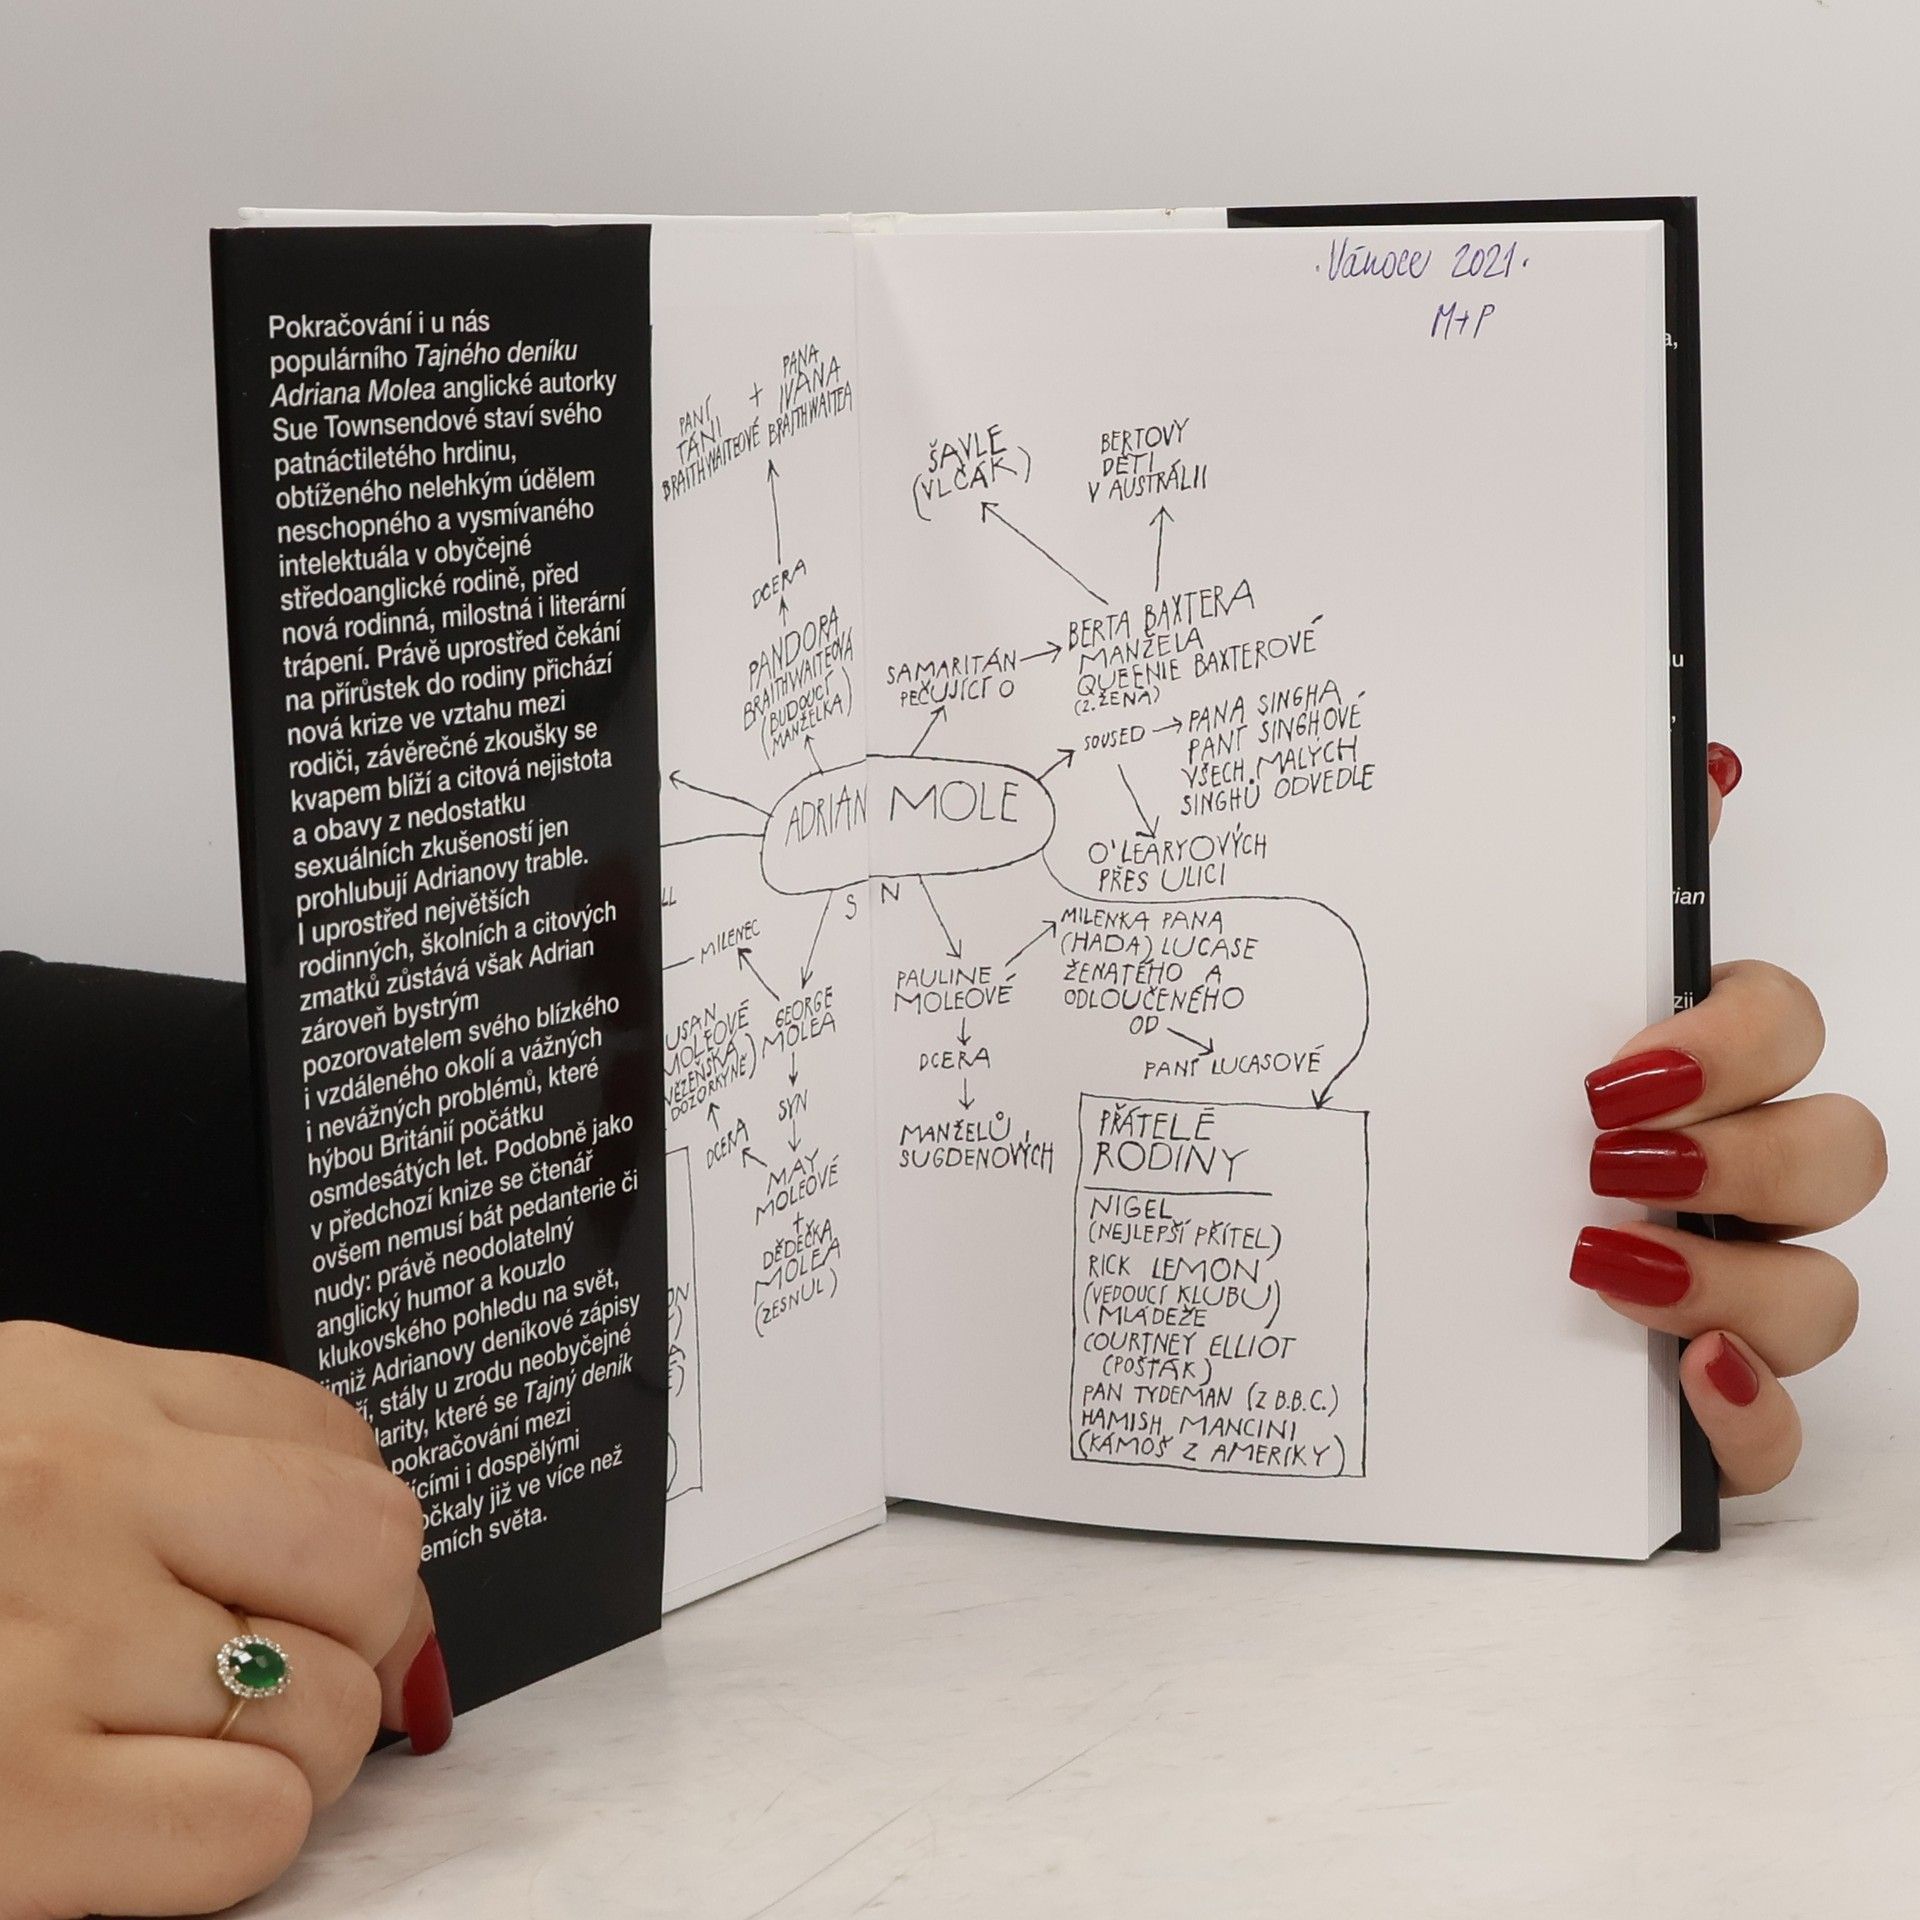 Pokračování i u nás
populárního Tajného deníku
Adriana Molea anglické autorky
Sue Townsendové staví svého
patnáctiletého hrdinu,
obtíženého nelehkým údělem
neschopného a vysmívaného
intelektuála v obyčejné
středoanglické rodině, před
nová rodinná, milostná i literární
trápení. Právě uprostřed čekání
na přírůstek do rodiny přichází
nová krize ve vztahu mezi
rodiči, závěrečné zkoušky se
kvapem blíží a citová nejistota
a obavy z nedostatku
sexuálních zkušeností jen
prohlubují Adrianovy trable.
I uprostřed největších
rodinných, školních a citových
zmatků zůstává však Adrian
zároveň bystrým
pozorovatelem svého blízkého
i vzdáleného okolí a vážných
i nevážných problémů, které
hýbou Británií počátku
osmdesátých let. Podobně jako
v předchozí knize se čtenář
ovšem nemusí bát pedanterie či
nudy: právě neodolatelný
anglický humor a kouzlo
klukovského pohledu na svět,
imiž Adrianovy deníkové zápisy
stály u zrodu neobyčejné
larity, které se Tajný deník
pokračování mezi
ícími i dospělými
očkaly již ve více než
emích světa.
PANÍ
TÁNI
BRAITHWAITEOVÉ
+
PANA
IVANA
BRAITHWAITEA
DCERA
PANDORA
BRAITHWAITEOVÁ
(BUDOUCÍ
MANŽELKA)
ADRIAN MOLE
S N
LL
MILENEC
GEORGE
MOLEA
USAN
MOLEOVÉ
VĚZEŇSKÁ
DOZORKYNĚ)
SYN
DCERA
MAY
MOLEOVÉ
+
DĚDEČKA
MOLEA
(ZESNUL)
·Vánoce 2021·
M+P
ŠAVLE
(VLČÁK)
BERTOVY
DĚTI
V AUSTRÁLII
SAMARITÁN
PEČUJÍCÍ O
BERTA BAXTERA
MANŽELA
QUEENIE BAXTEROVÉ
(2. ŽENA)
SOUSED
PANA SINGHA
PANÍ SINGHOVÉ
VŠECH MALÝCH
SINGHŮ ODVEDLE
O'LEARYOVÝCH
PŘES ULICI
PAULINE
MOLEOVÉ
MILENKA PANA
(HADA) LUCASE
ŽENATÉHO A
ODLOUČENÉHO
OD
PANÍ LUCASOVÉ
DCERA
MANŽELŮ
SUGDENOVÝCH
PŘÁTELÉ
RODINY
NIGEL
(NEJLEPŠÍ PŘÍTEL)
RICK LEMON
(VEDOUCÍ KLUBU)
(MLÁDEŽE
COURTNEY ELLIOT
(POŠŤÁK)
PAN TYDEMAN (Z B.B.C.)
HAMISH MANCINI
(KÁMOŠ Z AMERIKY)
a,
u
rian
zii